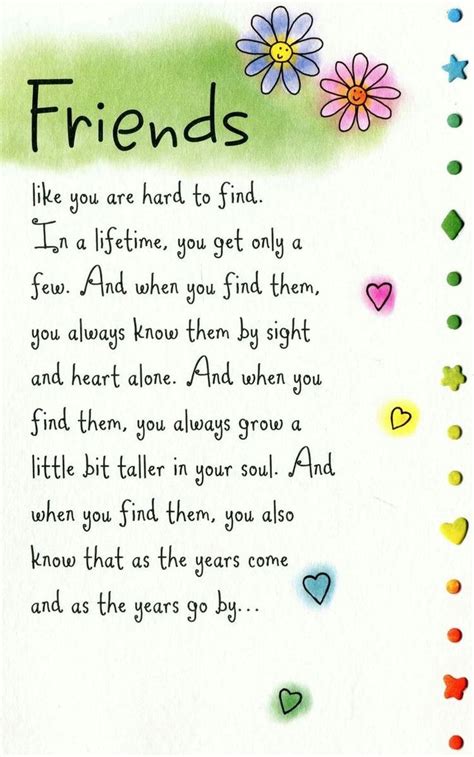 Friends
like you are hard to find.
In a lifetime, you get only a
few. And when you find them,
you always know them by sight
and heart alone. And when you
find them, you always grow a
little bit taller in your soul. And
when you find them, you also
know that as the years come
and as the years go by...